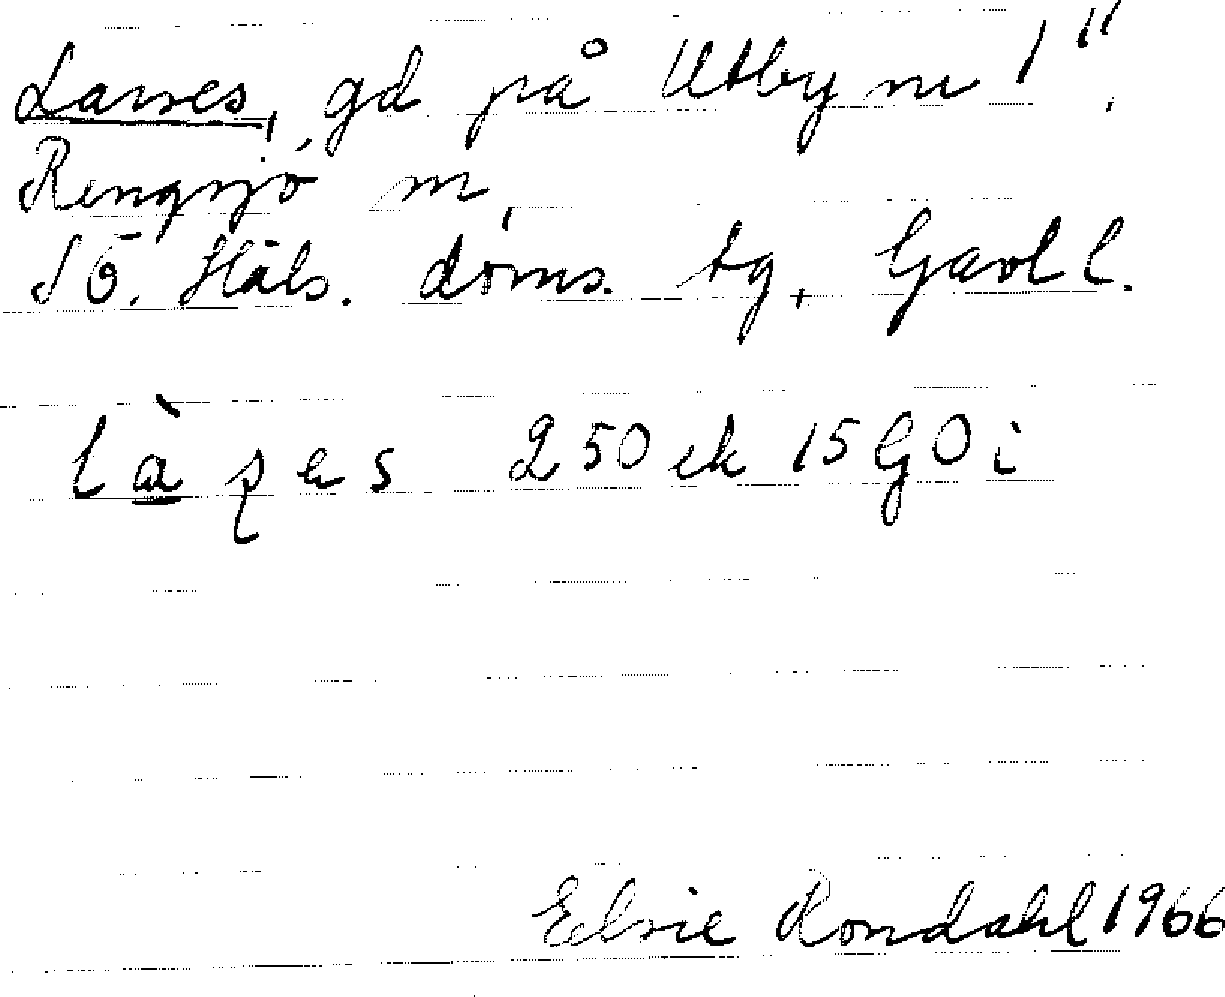 Larses, gd på Utby nr 1¹¹.
Rengsjö sn,
SÖ. Häls. doms. tg, Gävl l.
là ʂes 250 ek 15 G0i
Elsie Rondahl 1966